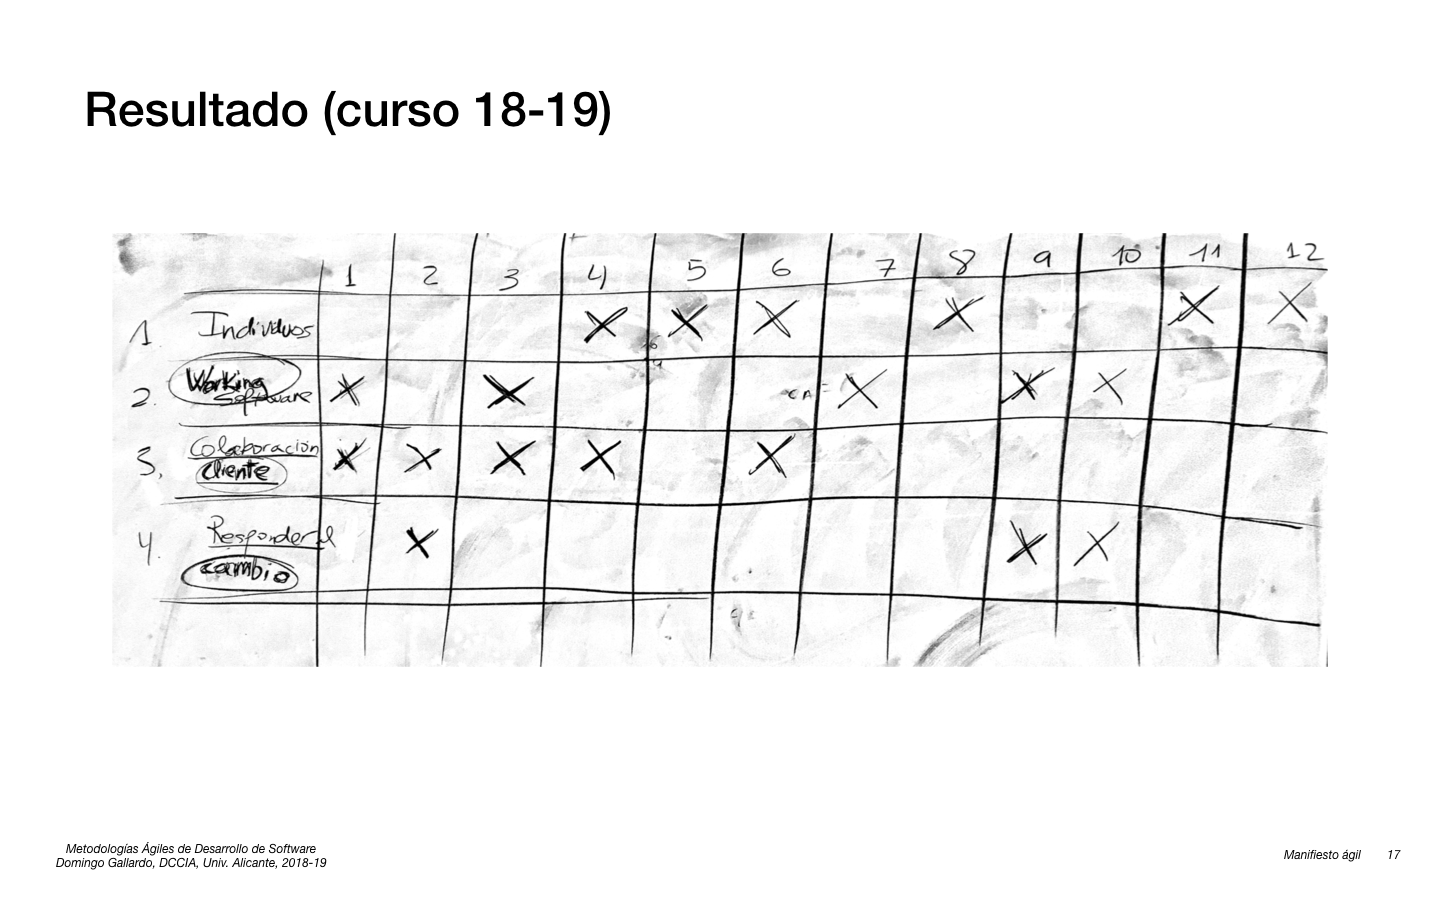 Resultado (curso 18-19)
1 2 3 4 5 6 7 8 9 10 11 12
1. Individuos X X X X X X
2. Working X X X X X
Software
3. Colaboración X X X X X
Cliente
4. Responder al X X X
cambio
Metodologías Ágiles de Desarrollo de Software
Domingo Gallardo, DCCIA, Univ. Alicante, 2018-19
Manifiesto ágil 17